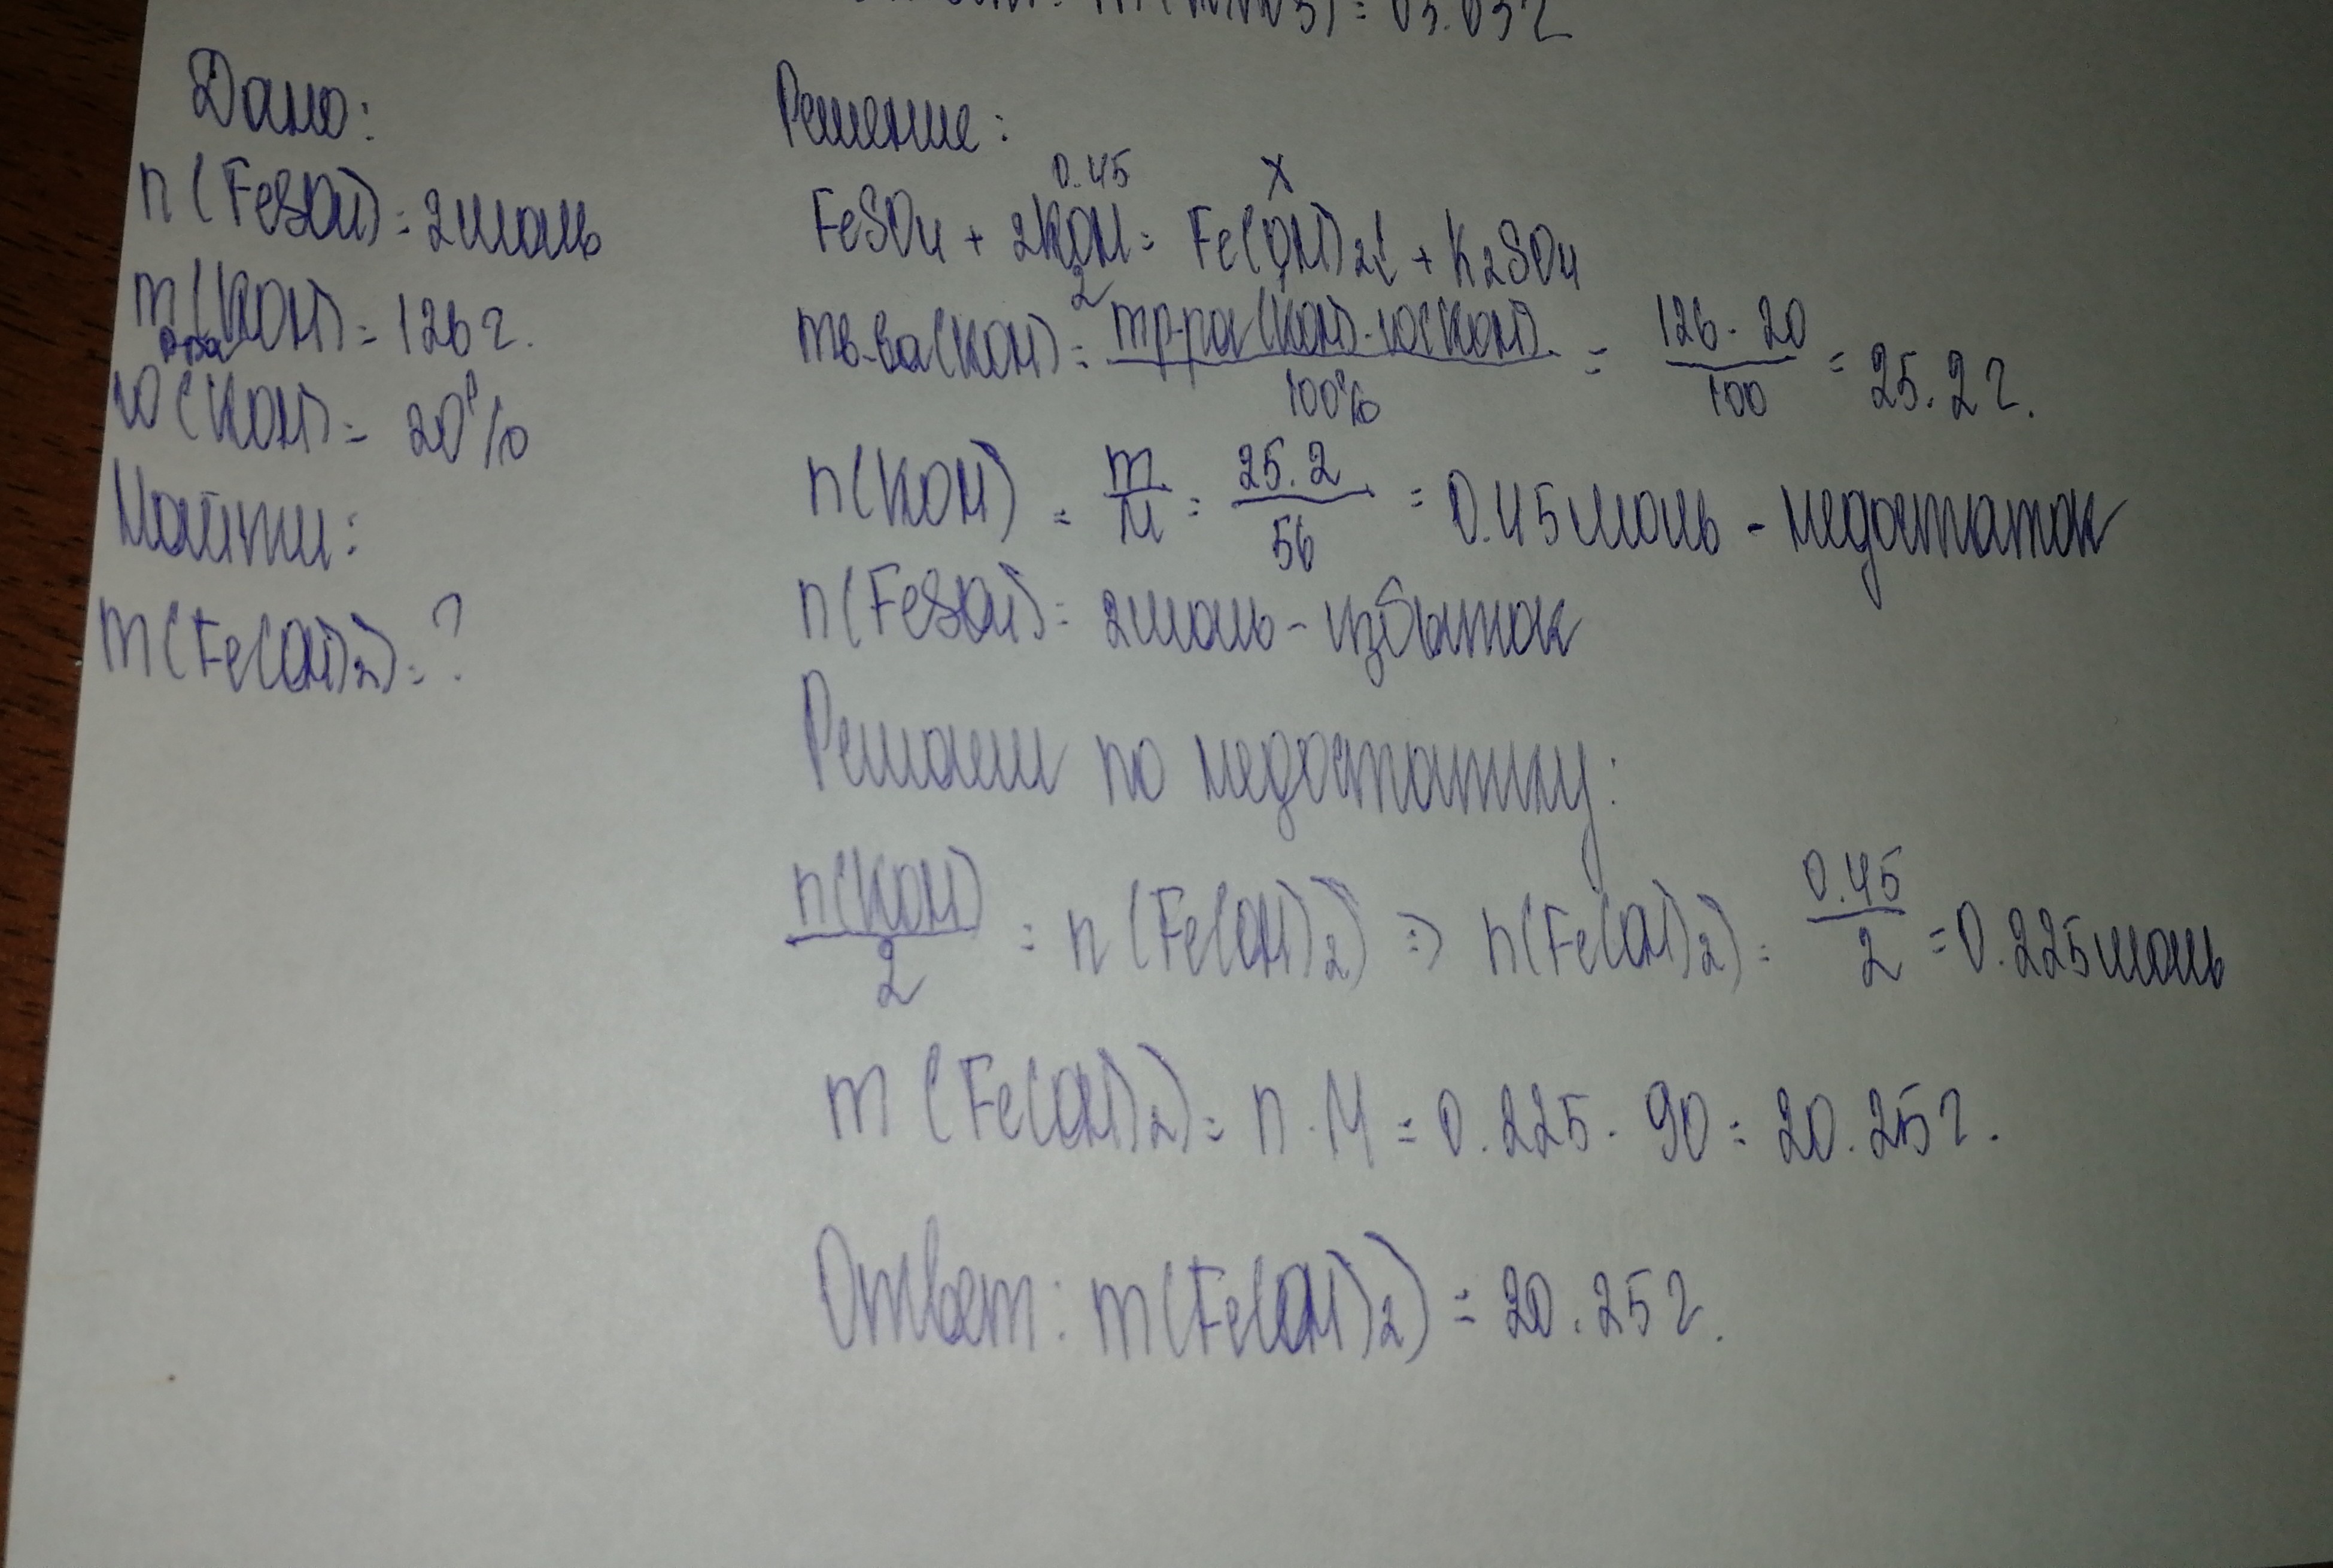 = 63.03г
Дано:
n(FeSO4) = 2моль
m р-ра(KOH) = 126г.
ω(KOH) = 20%
Найти:
m(Fe(OH)2) = ?
Решение:
0.45 x
FeSO4 + 2KOH = Fe(OH)2↓ + K2SO4
2
mв-ва(KOH) = mр-ра(KOH)·ω(KOH) / 100% = 126·20 / 100 = 25.2г.
n(KOH) = m / M = 25.2 / 56 = 0.45моль - недостаток
n(FeSO4) = 2моль - избыток
Решаем по недостатку:
n(KOH) / 2 = n(Fe(OH)2) => n(Fe(OH)2) = 0.45 / 2 = 0.225моль
m(Fe(OH)2) = n·M = 0.225·90 = 20.25г.
Ответ: m(Fe(OH)2) = 20.25г.